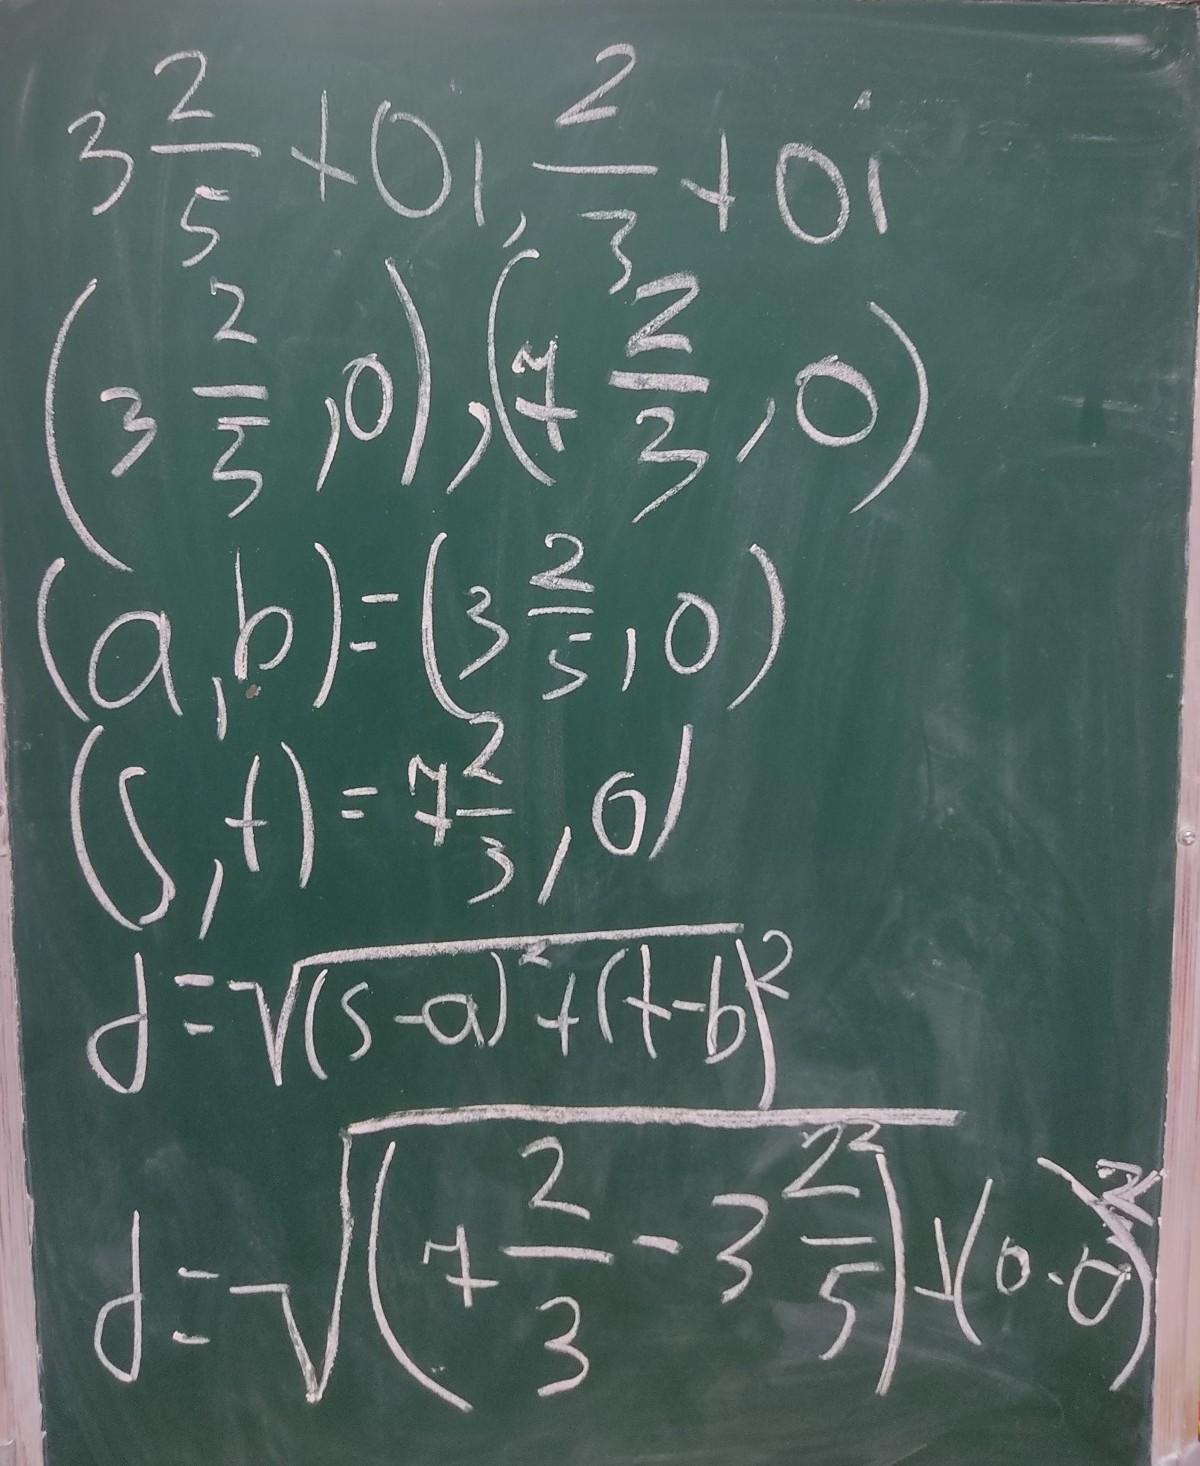 3 2/5 + 0i, 2/3 + 0i
(3 2/5, 0), (7 2/3, 0)
(a, b) = (3 2/5, 0)
(s, t) = 7 2/3, 0)
d = √(s-a)² + (t-b)²
d = √(7 2/3 - 3 2/5)² + (0-0)²